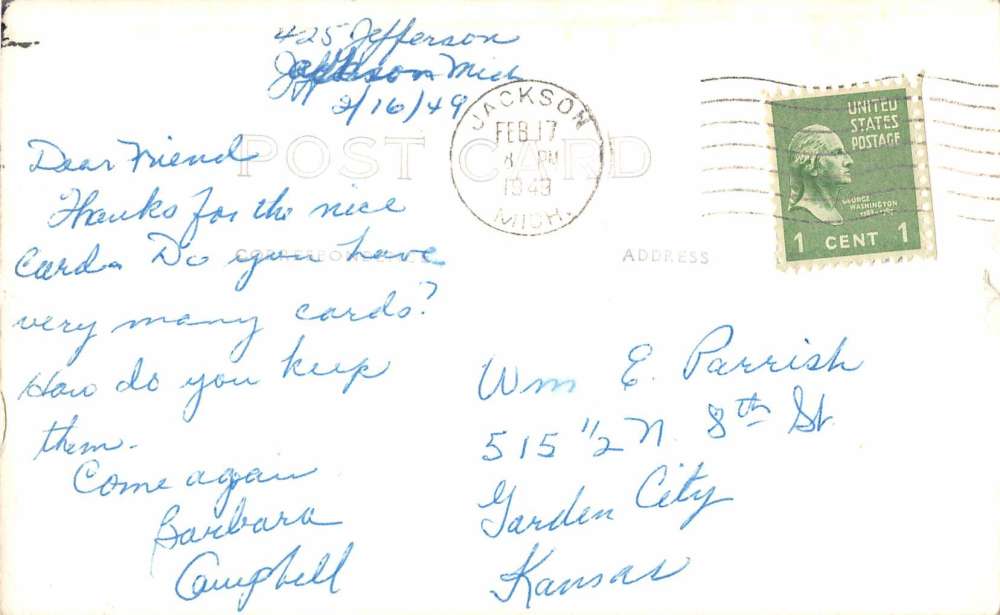 425 Jefferson
Jackson Mich
2/16/49
JACKSON
FEB 17
8 PM
1949
MICH.
UNITED
STATES
POSTAGE
GEORGE
WASHINGTON
1 CENT 1
POST CARD
CORRESPONDENCE
ADDRESS
Dear Friend
Thanks for the nice
card. Do you have
very many cards?
How do you keep
them.
Come again
Barbara
Campbell
Wm E. Parrish
515 1/2 N. 8th St.
Garden City
Kansas